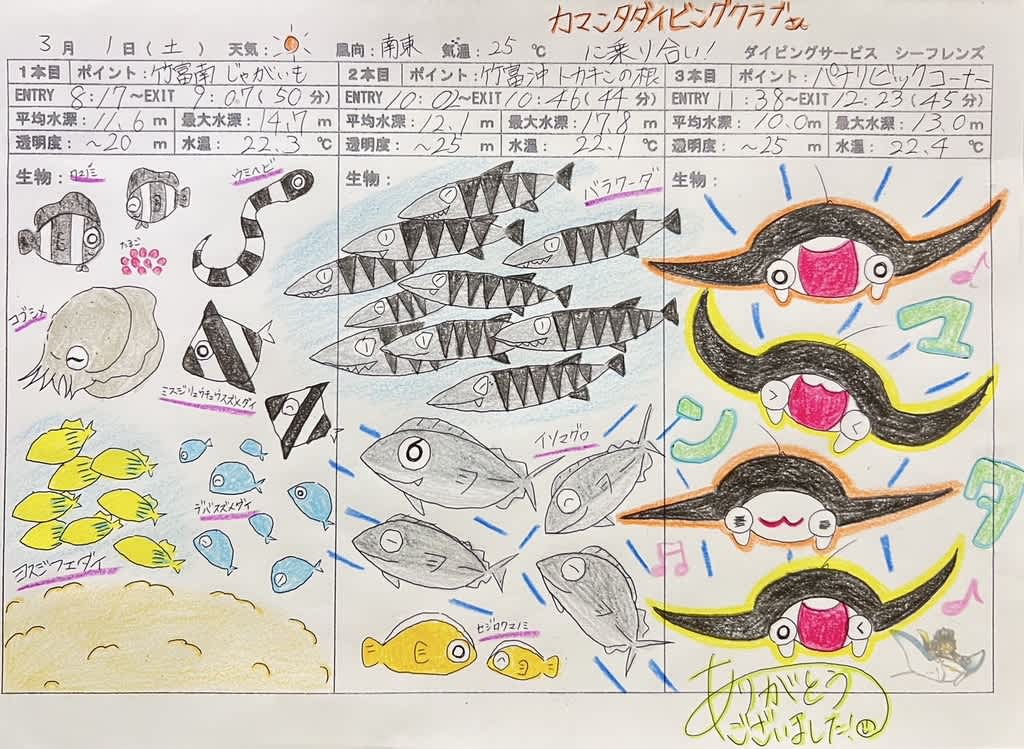 カマンタダイビングクラブさん
に乗り合い!
3月 1日(土) 天気: 風向:南東 気温:25℃ ダイビングサービス シーフレンズ
1本目 ポイント:竹富南 じゃがいも
ENTRY 8:17〜EXIT 9:07(50分)
平均水深:11.6m 最大水深:14.7m
透明度:〜20m 水温:22.3℃
生物:クマノミ
ウミヘビ
たまご
コブシメ
ミスジリュウキュウスズメダイ
デバスズメダイ
ヨスジフエダイ
2本目 ポイント:竹富沖 トカキンの根
ENTRY 10:02〜EXIT 10:46(44分)
平均水深:12.1m 最大水深:17.8m
透明度:〜25m 水温:22.1℃
生物:
バラクーダ
イソマグロ
セジロクマノミ
3本目 ポイント:パナリビックコーナー
ENTRY 11:38〜EXIT 12:23(45分)
平均水深:10.0m 最大水深:13.0m
透明度:〜25m 水温:22.4℃
生物:
マンタ
ありがとう
ございました!